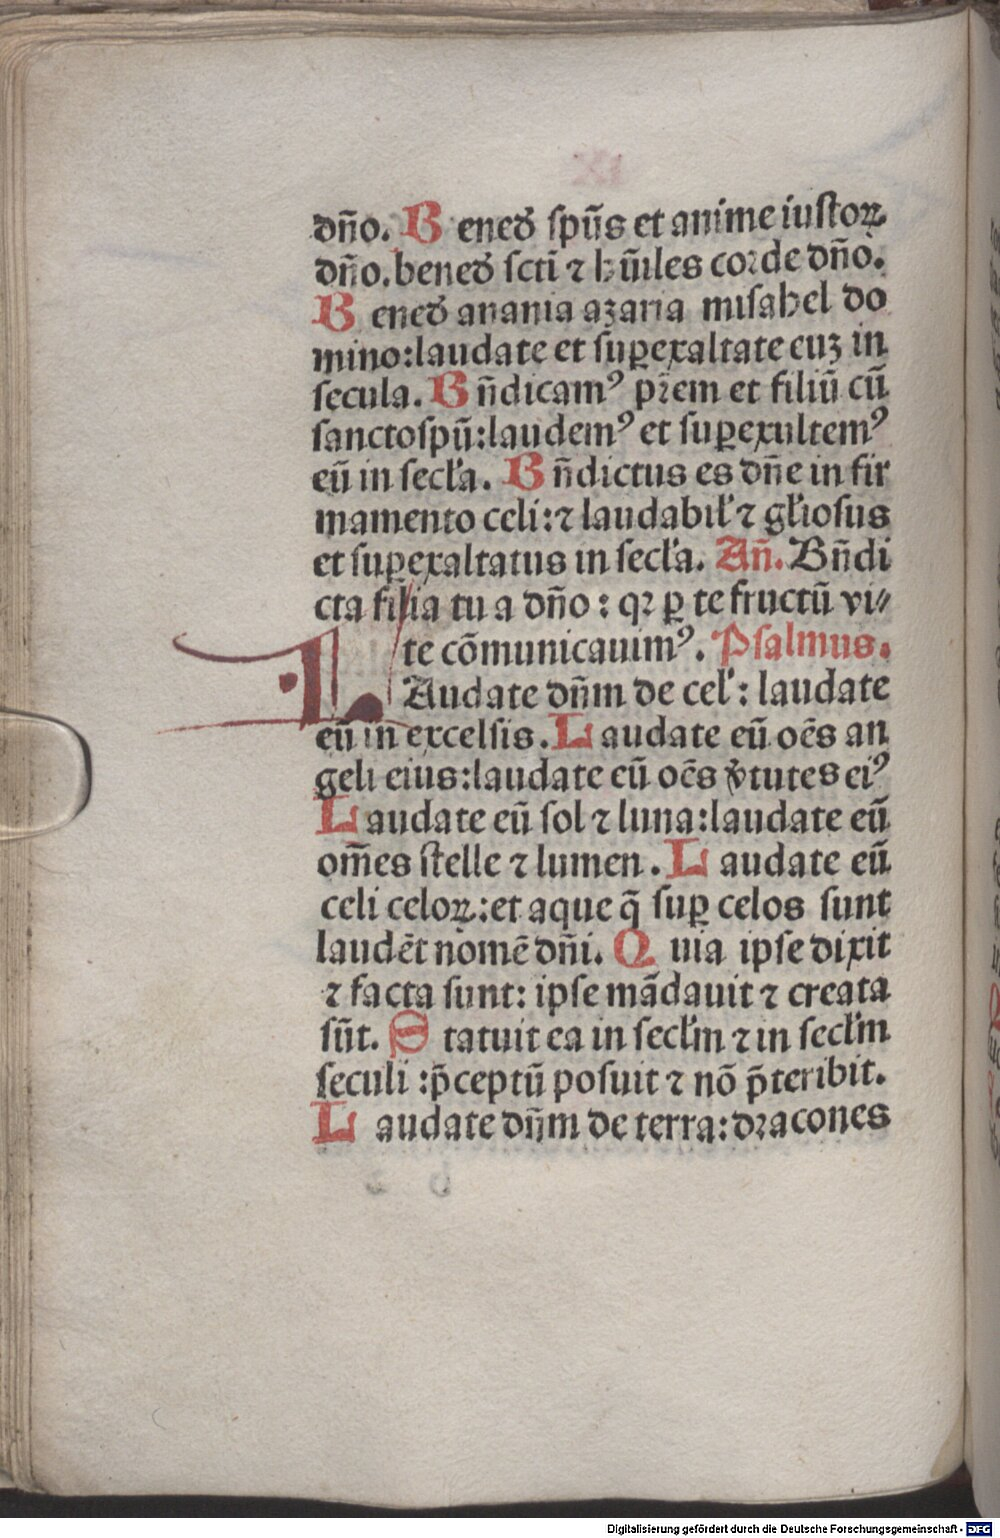 dn̄o. B ened̉ ſpūs et anime iuſtoꝝ
dn̄o. bened̉ ſctī ⁊ hūiles corde dn̄o.
B ened̉ anania azaria miſahel do
mino:laudate et ſuꝑexaltate euꝫ in
ſecula. B n̄dicamꝰ pr̄em et filiū cū
ſanctoſpū:laudemꝰ et ſuꝑexultemꝰ
eū in ſecl̓a. B n̄dictus es dn̄e in fir
mamento celi:⁊ laudabil̓ ⁊ gl̓ioſus
et ſuꝑexaltatus in ſecl̓a. An̄. Bn̄di
cta filia tu a dn̄o : qꝛ ꝑ te fructū vi⸗
te cōmunicauimꝰ. Pſalmus.
LAudate dn̄m de cel̓ : laudate
eū in excelſis. L audate eū oēs an
geli eius:laudate eū oēs v̓tutes eiꝰ
L audate eū ſol ⁊ luna:laudate eū
om̄es ſtelle ⁊ lumen. L audate eū
celi celoꝝ:et aque q̄ ſuꝑ celos ſunt
laudēt nomē dn̄i. Q uia ipſe dixit
⁊ facta ſunt: ipſe mādauit ⁊ creata
ſūt. S tatuit ea in ſecl̓m ⁊ in ſecl̓m
ſeculi :p̄ceptū poſuit ⁊ nō p̄teribit.
L audate dn̄m de terra:dracones
Digitalisierung gefördert durch die Deutsche Forschungsgemeinschaft - DFG